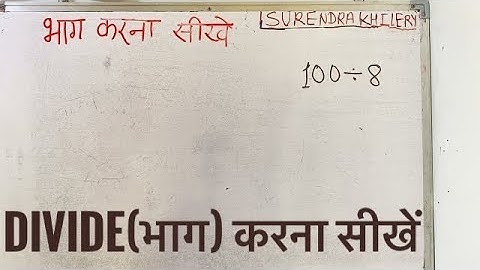 भाग करना सीखे
SURENDRA KHILERY
100÷8
DIVIDE(भाग) करना सीखें